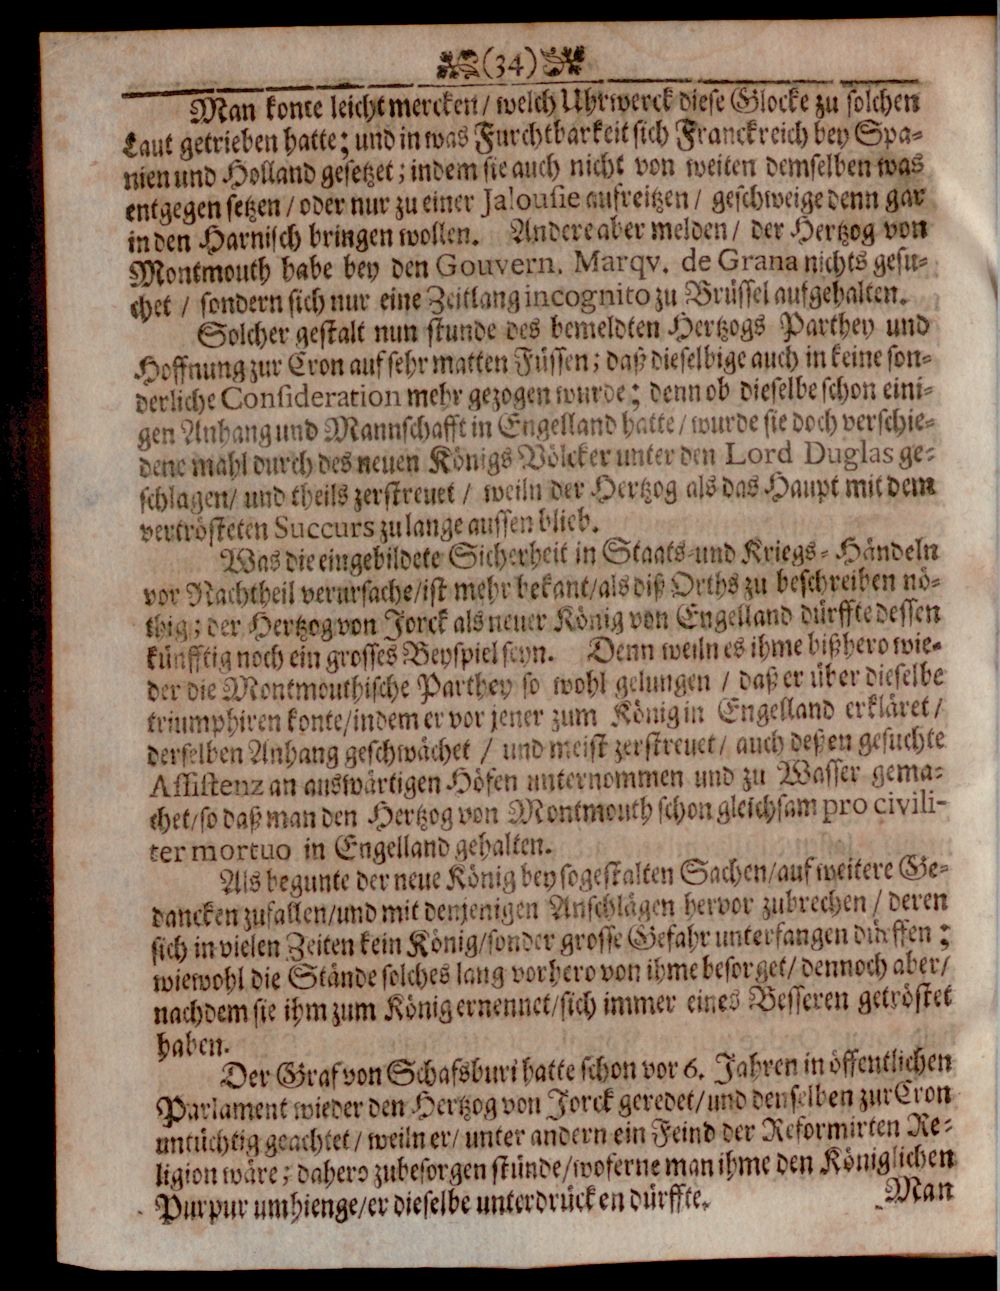 (34)
Man konte leicht mercken / welch Uhrwerck diese Glocke zu solchen
Laut getrieben hatte; und in was Furchtbarkeit sich Franckreich bey Spa-
nien und Holland gesetzet; indem sie auch nicht von weiten demselben was
entgegen setzen / oder nur zu einer Jalousie aufreitzen / geschweige denn gar
in den Harnisch bringen wollen. Andere aber melden / der Hertzog von
Montmouth habe bey den Gouvern. Marqv. de Grana nichts gesu-
chet / sondern sich nur eine Zeitlang incognito zu Brüssel aufgehalten.
Solcher gestalt nun stunde des bemeldten Hertzogs Parthey und
Hoffnung zur Cron auf sehr matten Füssen; daß dieselbige auch in keine son-
derliche Consideration mehr gezogen wurde; denn ob dieselbe schon eini-
gen Anhang und Mannschafft in Engelland hatte / wurde sie doch verschie-
dene mahl durch des neuen Königs Völcker unter den Lord Duglas ge-
schlagen / und theils zerstreuet / weiln der Hertzog als das Haupt mit dem
vertrösteten Succurs zu lange aussen blieb.
Was die eingebildete Sicherheit in Staats- und Kriegs-Händeln
vor Nachtheil verursache / ist mehr bekant / als diß Orths zu beschreiben nö-
thig; der Hertzog von Jorck als neuer König von Engelland dürffte dessen
künfftig noch ein grosses Beyspiel seyn. Denn weiln es ihme bißhero wie-
der die Montmouthische Parthey so wohl gelungen / daß er über dieselbe
triumphiren konte / indem er vor jener zum König in Engelland erkläret /
derselben Anhang geschwächet / und meist zerstreuet / auch deßen gesuchte
Assistenz an auswärtigen Höfen unternommen und zu Wasser gema-
chet / so daß man den Hertzog von Montmouth schon gleichsam pro civili-
ter mortuo in Engelland gehalten.
Als begunte der neue König bey sogestalten Sachen / auf weitere Ge-
dancken zufallen / und mit denjenigen Anschlägen hervor zubrechen / deren
sich in vielen Zeiten kein König / sonder grosse Gefahr unterfangen dürffen;
wiewohl die Stände solches lang vorhero von ihme besorget / dennoch aber /
nachdem sie ihm zum König ernennet / sich immer eines Besseren getröstet
haben.
Der Graf von Schafsburi hatte schon vor 6. Jahren in öffentlichen
Parlament wieder den Hertzog von Jorck geredet / und denselben zur Cron
untüchtig geachtet / weiln er / unter andern ein Feind der Reformirten Re-
ligion wäre; dahero zubesorgen stünde / woferne man ihme den Königlichen
Purpur umhienge / er dieselbe unterdrücken dürffte.
Man